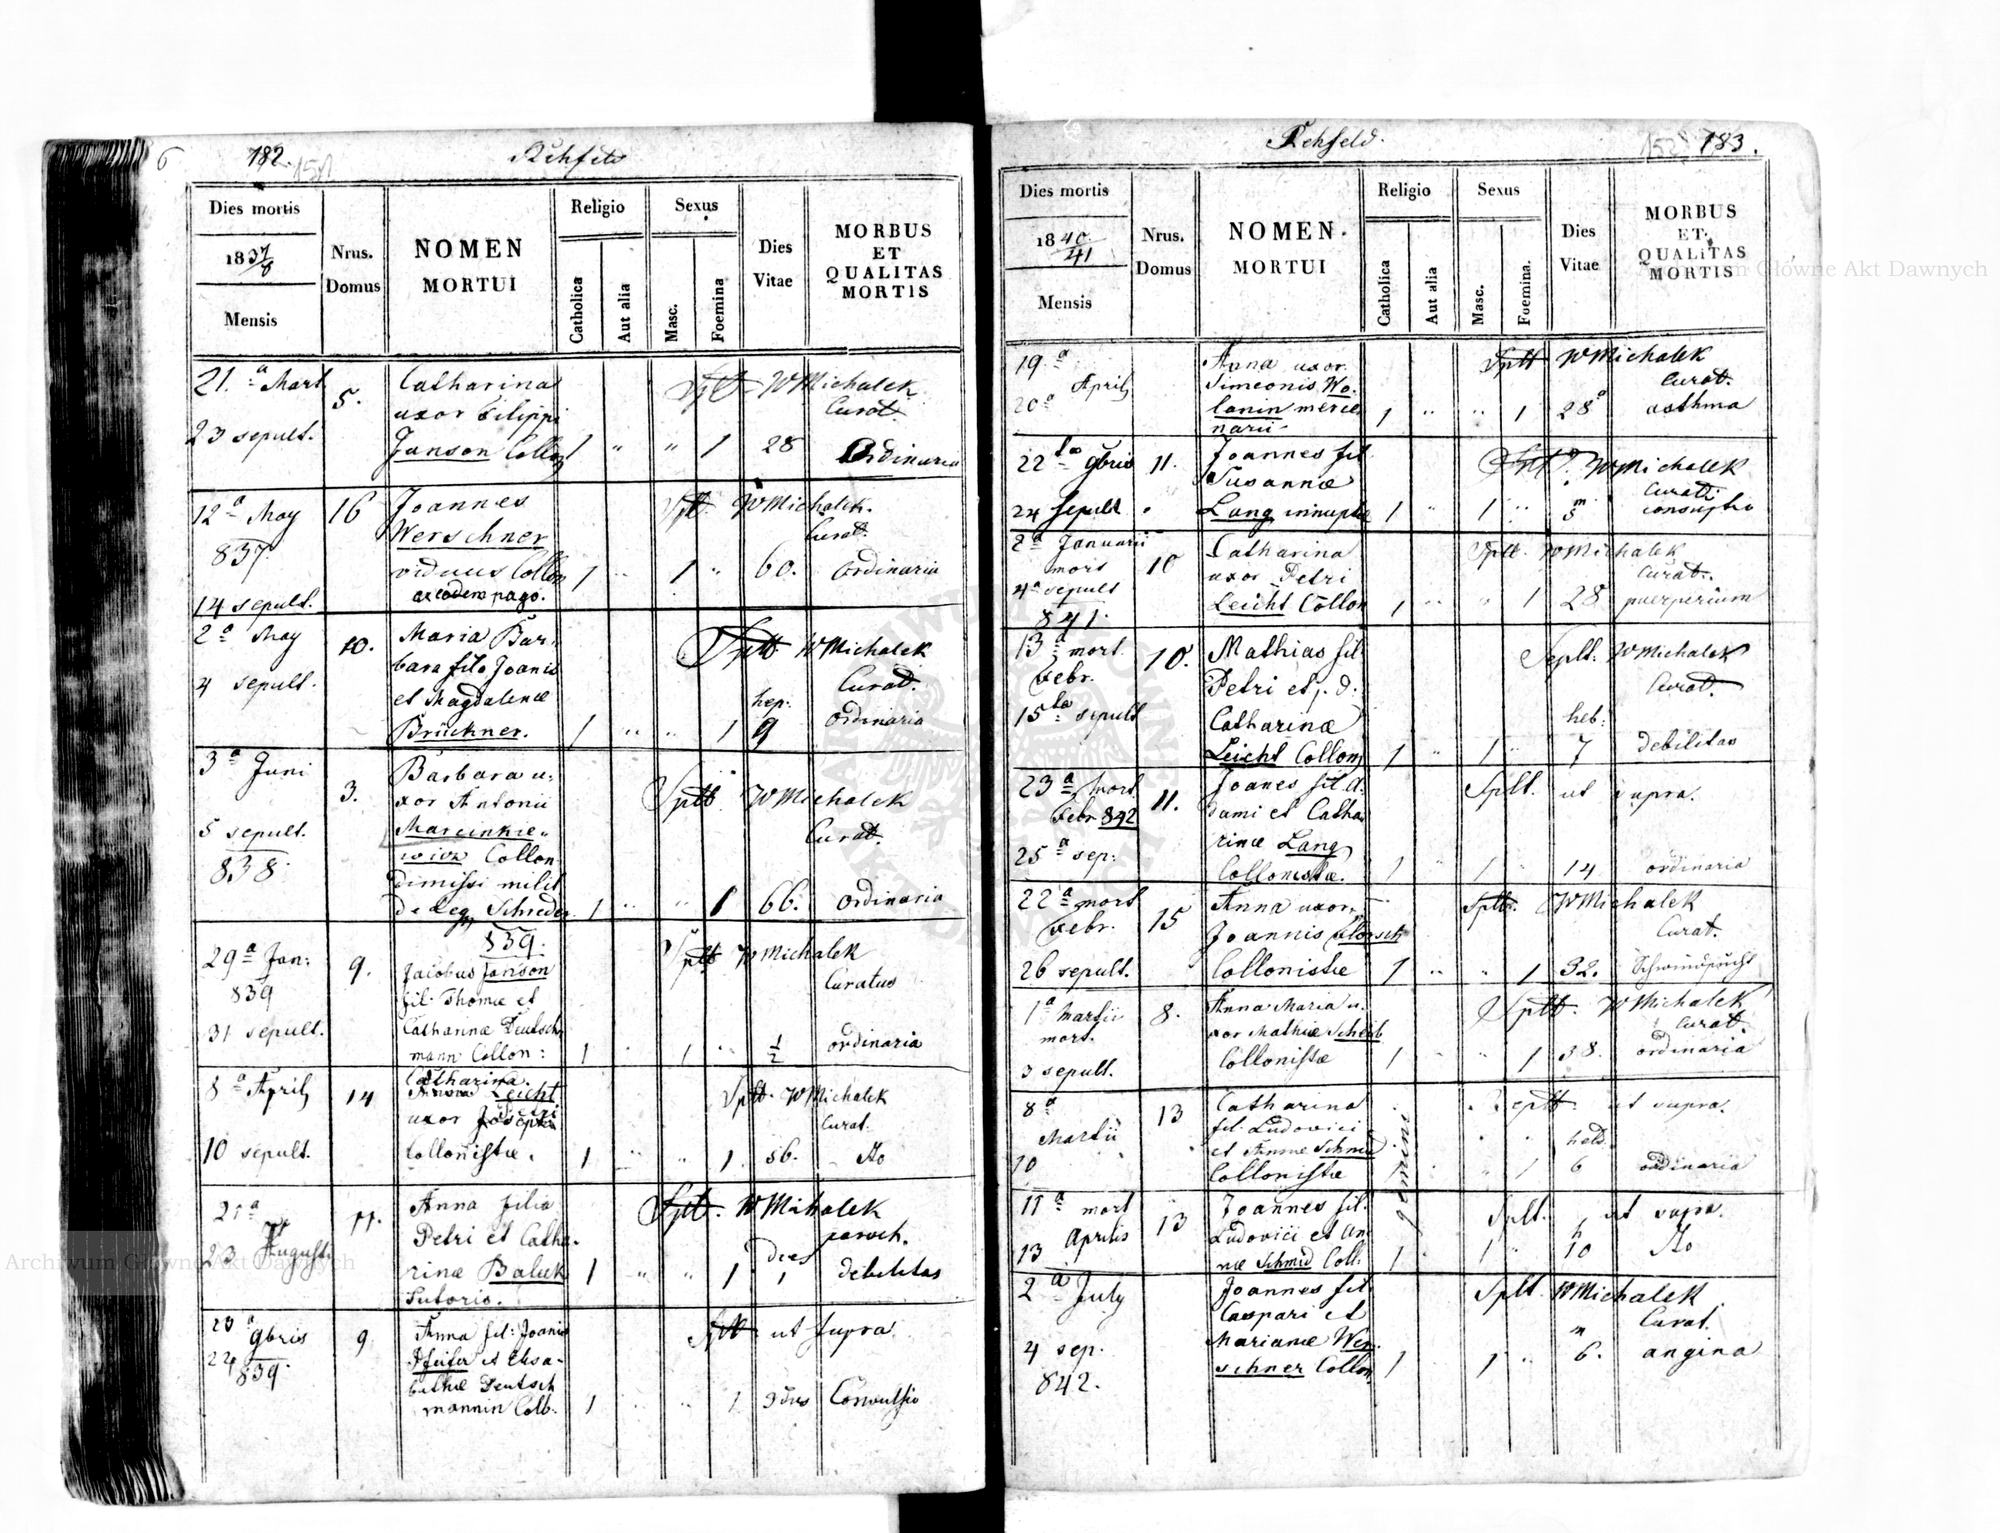 182.
Rehfeld
Dies mortis
1837/8
Mensis
Nrus.
Domus
NOMEN
MORTUI
Religio
Catholica
Aut alia
Sexus
Masc.
Foemina
Dies
Vitae
MORBUS
ET
QUALITAS
MORTIS
21.a Mart
23 sepult.
5.
Catharina
uxor Filippi
Janson Collon
W Michalek
Curat.
1 " " 1 28
Ordinaria
12a May
837
14 sepult.
16
Joannes
Werschner
viduus Collon
ex eodem pago.
Splt. W Michalek
Curat.
1 " 1 " 60. ordinaria
2a May
4 sepult.
10.
Maria Bar-
bara fila Joanis
et Magdalenæ
Brückner.
Splt W Michalek
Curat.
1 " " 1 9 ordinaria
3a Juni
5 sepult.
838.
3.
Barbara u-
xor Antonii
Marcinkie-
wicz Collon
dimissi milit
de Leg. Schreder
Splt W Michalek
Curat.
1 " " 1 66. ordinaria
839.
29a Jan:
839
31 sepult.
9.
Jacobus Janson
fil. Thomæ et
Catharinæ Deutsch
mann Collon:
Splt W Michalek
Curatus
1 " 1 " 1/2 ordinaria
8a April
10 sepult.
14
Catharina
Leicht
uxor Petri
Collonistæ.
Splt. W Michalek
Curat.
1 " " 1 56. do
21a
23 Augusti
11.
Anna filia
Petri et Catha-
rinæ Baluk
Sutoris.
Splt. W Michalek
paroch.
dies
1 " " 1 1 debilitas
23a 9bris
24
839.
9
Anna fil: Joanis
Pfeifer et Elisa-
bethæ Deutsch
mannin Coll.
Splt ut supra
1 " " 1 3 dies Convulsio
183.
Rehfeld.
Dies mortis
1840/41
Mensis
Nrus.
Domus
NOMEN
MORTUI
Religio
Catholica
Aut alia
Sexus
Masc.
Foemina.
Dies
Vitae
MORBUS
ET
QUALITAS
MORTIS
19a
April
20a
Anna uxor
Simeonis Wo-
lanin merce
narii
Splt W Michalek
Curat.
1 " " 1 28 asthma
22 9bris
24 sepult
11.
Joannes fil
Susannæ
Lang innuptæ
W Michalek
Curat.
1 " 1 " m 5
2a Januarii
mort
4a sepult
841.
10
Catharina
uxor Petri
Leicht Collon
Splt. W Michalek
Curat.
1 " " 1 28 puerperium
13a mort.
Febr.
15ta sepult
10.
Mathias fil.
Petri et p. d.
Catharinæ
Leicht Collon
Seplt. W Michalek
Curat.
heb:
1 " 1 " 7 debilitas
23a mort.
Febr 842
25a sep:
11.
Joanes fil A-
dami et Catha
rinæ Lang
Collonistæ.
Splt. ut supra.
1 " 1 " 14 ordinaria
22a mort
Febr.
26 sepult.
15
Anna uxor
Joannis
Collonistæ
Splt. W Michalek
Curat.
1 " " 1 32. Schwindsucht
1a Martii
mort.
3 sepult.
8.
Anna Maria u-
xor Mathiæ Scheib
Collonistæ
Splt. W Michalek
Curat.
1 " " 1 38. ordinaria
8a
Martii
10
13
Catharina
fil. Ludovici
et Annæ Schmid
Collonistæ
gemini
Seplt. ut supra.
hebd.
" 1 6 ordinaria
11a mort
Aprilis
13
13
Joannes fil.
Ludovici et An
næ Schmid Coll:
Splt. ut supra.
h
1 " 1 " 10 do
2a July
4 sep.
842.
Joannes fil
Caspari et
Marianæ Wer-
schner Collon
Splt. W Michalek
Curat.
m
1 1 " 6. angina
Archiwum Główne Akt Dawnych
Archiwum Główne Akt Dawnych